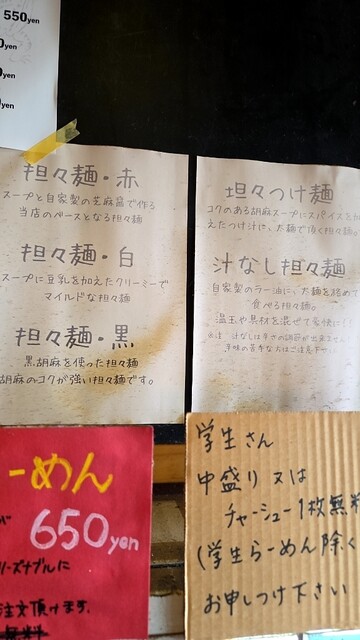 550yen
yen
yen
yen
担々麺・赤
スープと自家製の芝麻醤で作る
当店のベースとなる担々麺
担々麺・白
スープに豆乳を加えたクリーミーで
マイルドな担々麺
担々麺・黒
黒胡麻を使った担々麺
胡麻のコクが強い担々麺です。
坦々つけ麺
コクのある胡麻スープにスパイスを加
えたつけ汁に、太麺で頂く担々麺。
汁なし担々麺
自家製のラー油に、太麺を絡めて
食べる担々麺。
温玉や具材を混ぜて豪快に
※注 汁なしは辛さの調節が出来ません
辛味の苦手な方はご注意下
ーめん
が 650yen
リーズナブルに
注文頂けます。
無料
学生さん
中盛り 又は
チャーシュー1枚無料
(学生らーめん除く
お申しつけ下さい